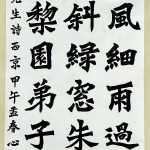 風細雨過
斜緑窓朱
梨園弟子
先生詩西京甲午孟春心